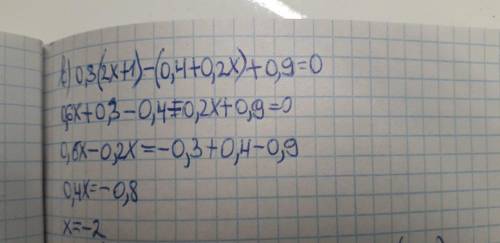 к) 0,3(2x+1)-(0,4+0,2x)+0,9=0
0,6x+0,3-0,4-0,2x+0,9=0
0,6x-0,2x=-0,3+0,4-0,9
0,4x=-0,8
x=-2